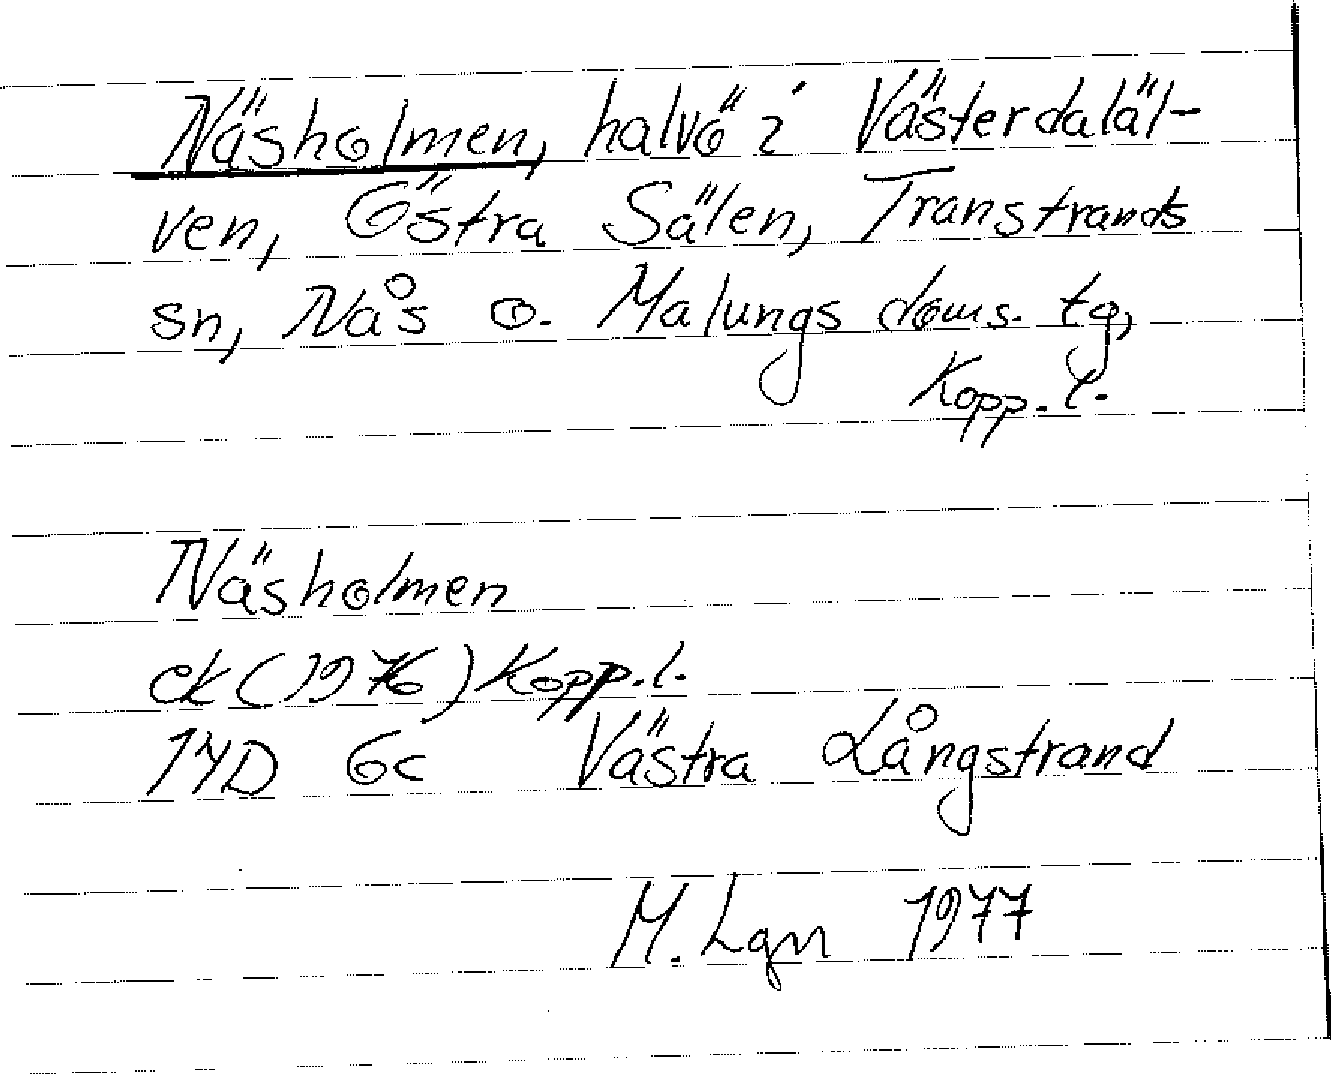 Näsholmen, halvö i Västerdaläl-
ven, Östra Sälen, Transtrands
sn, Nås o. Malungs doms. tg,
Kopp. l.
Näsholmen
ek (1976) Kopp. l.
14D 6c Västra Långstrand
M. Lgn 1977